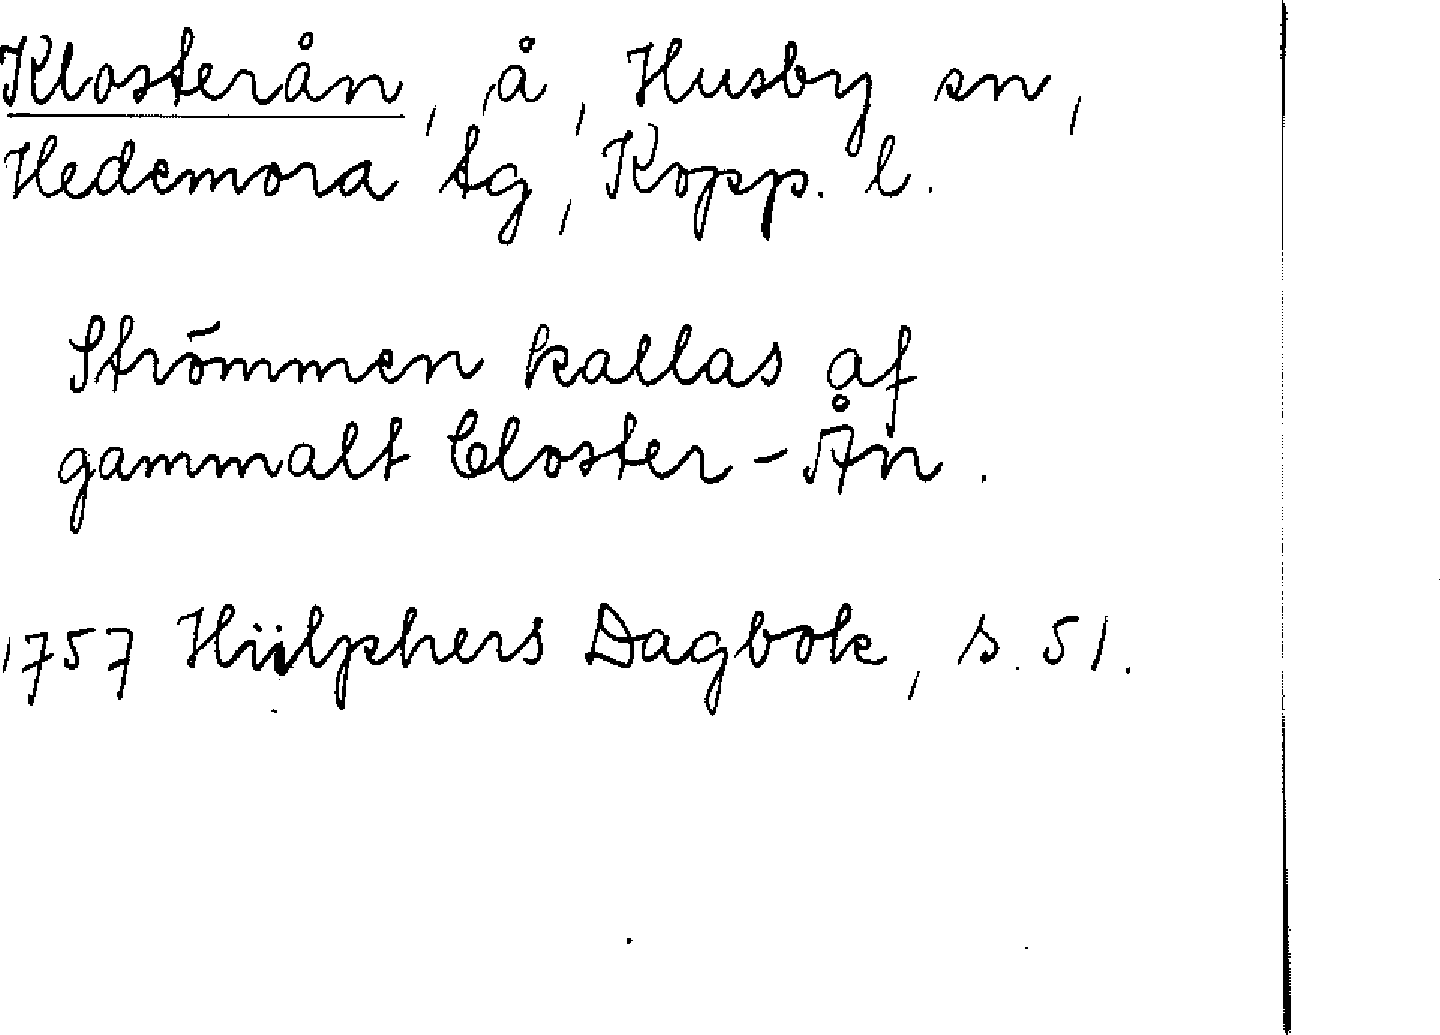 Klosterån, å, Husby sn,
Hedemora tg, Kopp. l.
Strömmen kallas af
gammalt Closter-Ån.
1757 Hülphers Dagbok, s. 51.